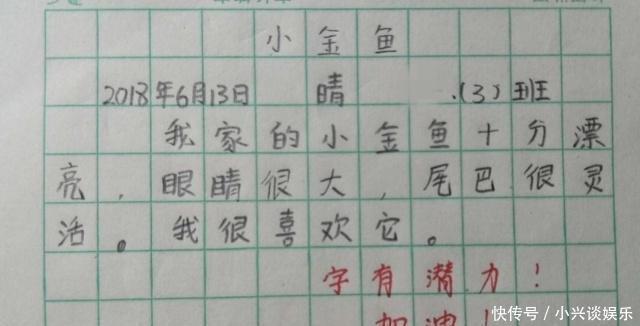 小金鱼
2018年6月13日 晴 .(3)班
我家的小金鱼十分漂
亮，眼睛很大，尾巴很灵
活。我很喜欢它。
字有潜力！
加油！
快传号/小兴谈娱乐